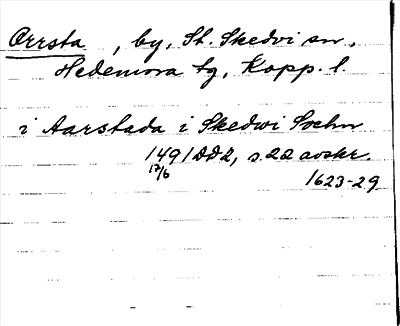 Orrsta, by, St. Skedvi sn,
Hedemora tg, Kopp. l.
i Aarstada i Skedwi Sochn
1491 DD2, s. 22 avskr.
17/6
1623-29